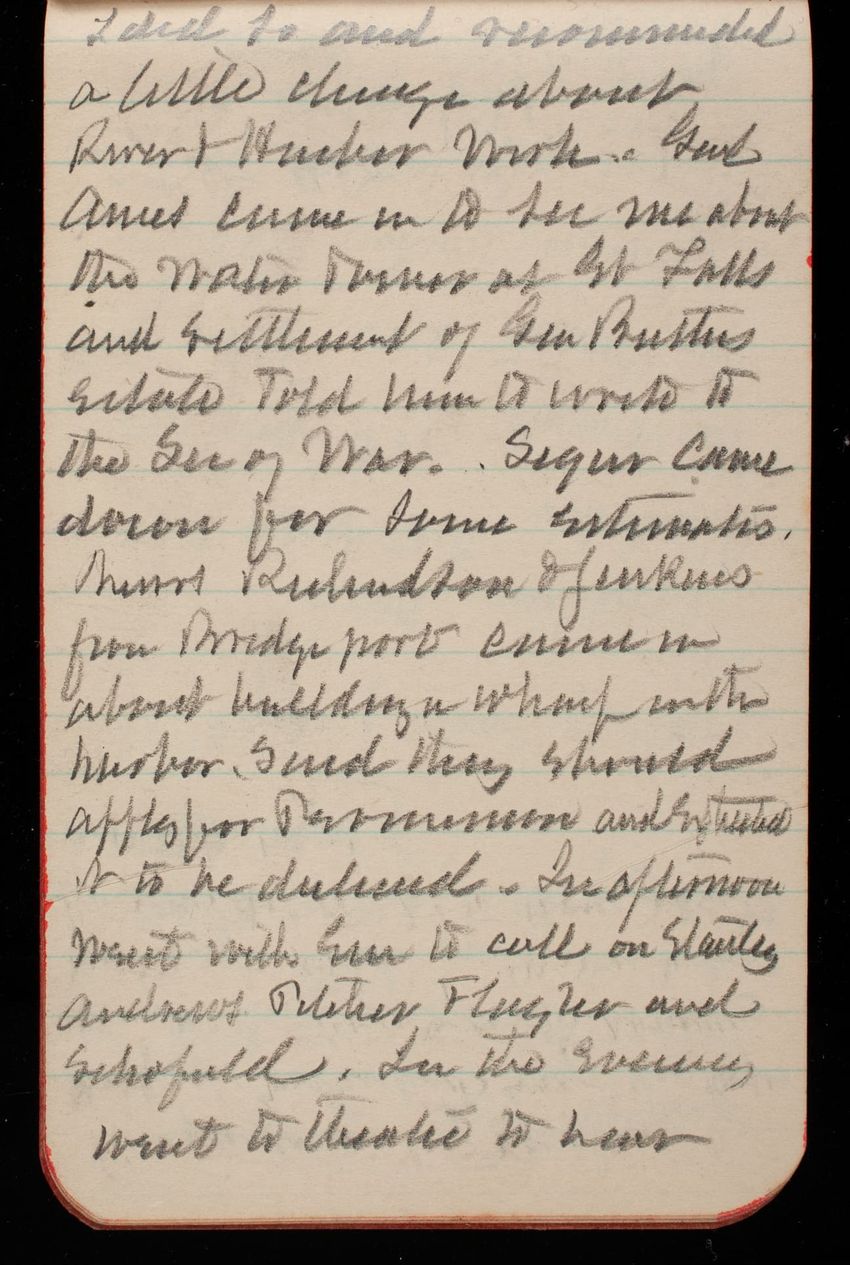 I did so and recommended
a little change about
River & Harbor Work. Genl
Ames came in to see me about
the Water Power at Gt Falls
and settlement of Gen Butlers
Estate Told him to write to
the Sec of War. Segur came
down for some estimates.
Messrs Richardson & Jenkins
from Bridgeport came in
about building a wharf in the
harbor. Said they should
apply for Permission and
it to be . In afternoon
went with Em to call on Stanley
Andrews Fletcher Flagler and
Schofield. In the Evening
went to theatre to hear